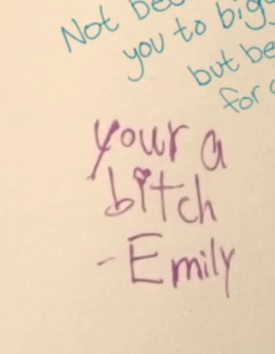 Not be
you to big
but be
for
your a
bitch
-Emily